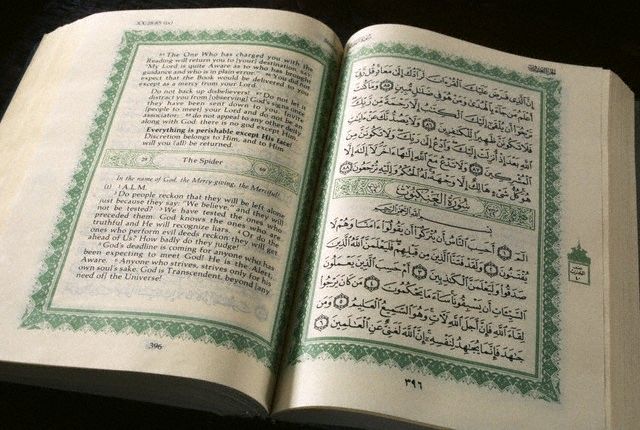 XX:28:85 (ix)
85 The One Who has charged you with the
Reading will return you to [your] destination.
"My Lord is quite Aware as to who has brought
guidance and who is in plain error." 86 You did not
expect that the Book would be delivered to you
except as a mercy from your Lord.
Do not back up disbelievers! 87 Do not let it
distract you from [observing] God's signs once
they have been sent down to you. Invite
[people to meet] your Lord and do not be an
associator; 88 do not appeal to any other deity
along with God: there is no god except Him.
Everything is perishable except His face!
Discretion belongs to Him, and to Him
will you (all) be returned.
29 The Spider 69
In the name of God, the Mercy-giving, the Merciful!
(i) 1 A.L.M.
2 Do people reckon that they will be left alone
just because they say: "We believe," and they will
not be tested? 3 We have tested the ones who
preceded them. God knows the ones who are
truthful and He will recognize liars. 4 Or do the
ones who perform evil deeds reckon they will get
ahead of Us? How badly do they judge!
5 God's deadline is coming for anyone who has
been expecting to meet God! He is the Alert,
Aware. 6 Anyone who strives, strives only for his
own soul's sake. God is Transcendent, beyond [any
need of] the Universe!
396
إِنَّ الَّذِي فَرَضَ عَلَيْكَ الْقُرْءَانَ لَرَادُّكَ إِلَىٰ مَعَادٍ قُل رَّبِّي
أَعْلَمُ مَن جَاءَ بِالْهُدَىٰ وَمَنْ هُوَ فِي ضَلَٰلٍ مُّبِينٍ ٨٥ وَمَا كُنتَ
تَرْجُوا أَن يُلْقَىٰ إِلَيْكَ الْكِتَٰبُ إِلَّا رَحْمَةً مِّن رَّبِّكَ
فَلَا تَكُونَنَّ ظَهِيرًا لِّلْكَٰفِرِينَ ٨٦ وَلَا يَصُدُّنَّكَ عَنْ ءَايَٰتِ
اللَّهِ بَعْدَ إِذْ أُنزِلَتْ إِلَيْكَ وَادْعُ إِلَىٰ رَبِّكَ وَلَا تَكُونَنَّ مِنَ
الْمُشْرِكِينَ ٨٧ وَلَا تَدْعُ مَعَ اللَّهِ إِلَٰهًا ءَاخَرَ لَا إِلَٰهَ إِلَّا
هُوَ كُلُّ شَيْءٍ هَالِكٌ إِلَّا وَجْهَهُ لَهُ الْحُكْمُ وَإِلَيْهِ تُرْجَعُونَ ٨٨
سُورَةُ الْعَنكَبُوتِ
بِسْمِ اللَّهِ الرَّحْمَٰنِ الرَّحِيمِ
الٓمٓ ١ أَحَسِبَ النَّاسُ أَن يُتْرَكُوا أَن يَقُولُوا ءَامَنَّا وَهُمْ لَا
يُفْتَنُونَ ٢ وَلَقَدْ فَتَنَّا الَّذِينَ مِن قَبْلِهِمْ فَلَيَعْلَمَنَّ اللَّهُ الَّذِينَ
صَدَقُوا وَلَيَعْلَمَنَّ الْكَٰذِبِينَ ٣ أَمْ حَسِبَ الَّذِينَ يَعْمَلُونَ
السَّيِّـَٔاتِ أَن يَسْبِقُونَا سَاءَ مَا يَحْكُمُونَ ٤ مَن كَانَ يَرْجُوا
لِقَاءَ اللَّهِ فَإِنَّ أَجَلَ اللَّهِ لَـَٔاتٍ وَهُوَ السَّمِيعُ الْعَلِيمُ ٥ وَمَن
جَٰهَدَ فَإِنَّمَا يُجَٰهِدُ لِنَفْسِهِ إِنَّ اللَّهَ لَغَنِيٌّ عَنِ الْعَٰلَمِينَ ٦
٣٩٦